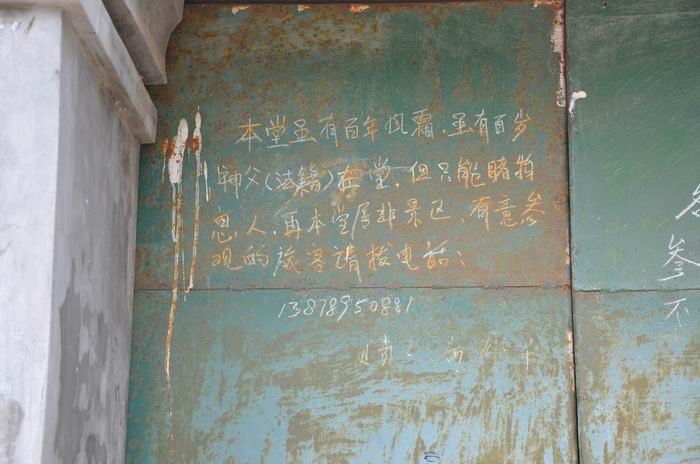 本堂虽有百年风霜,虽有百岁
师父(法籍)在堂,但只能睹拍
思人,再本堂属非景区,有意参
观的旅客请拨电话:
13878950881
参
不